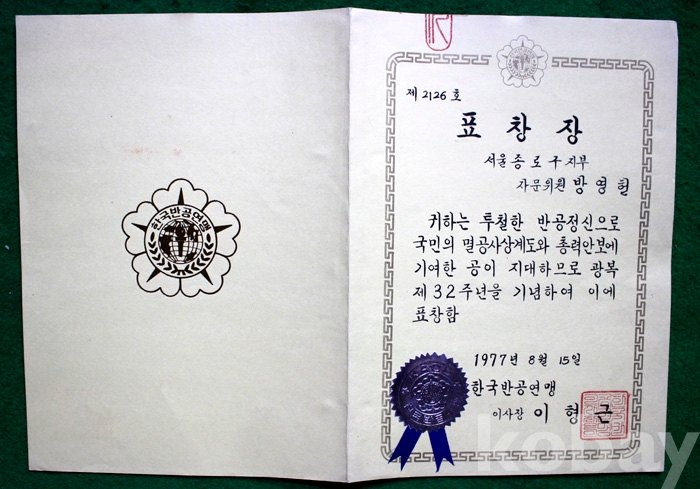 한국반공연맹
제 2126 호
표창장
서울 종로구 지부
자문위원 방영헌
귀하는 투철한 반공정신으로
국민의 멸공사상계도와 총력안보에
기여한 공이 지대하므로 광복
제32주년을 기념하여 이에
표창함
1977년 8월 15일
한국반공연맹
이사장 이형근
kobay